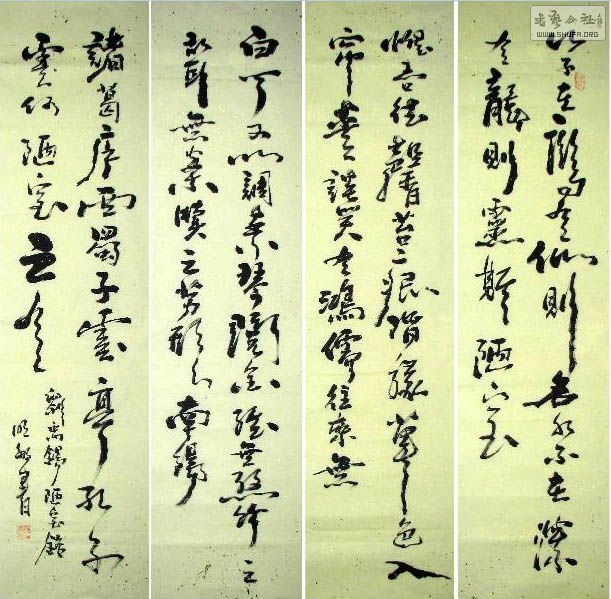 书艺公社
WWW.SHUFA.ORG
山不在高有仙則名水不在深
有龍則靈斯陋室
惟吾德馨苔痕階綠草色入
簾青談笑有鴻儒往來無
白丁可以調素琴閱金經無絲竹之
亂耳無案牘之勞形南陽
諸葛廬西蜀子雲亭孔子
雲何陋室之有
劉禹錫陋室銘